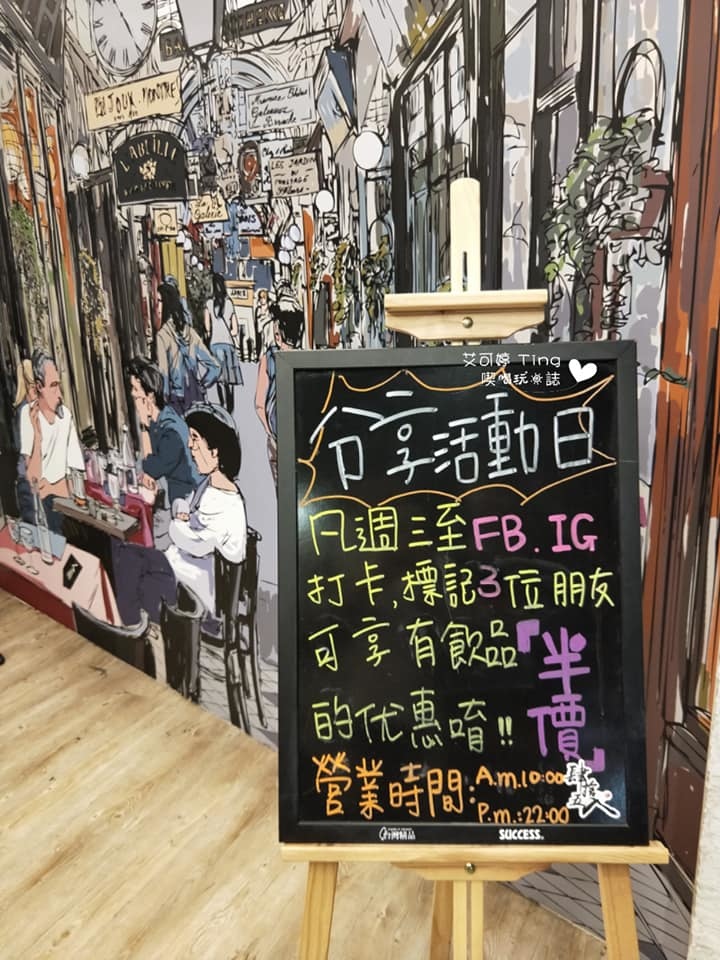 艾可婷 Ting
喫喝玩樂誌
分享活動日
凡週三至FB.IG
打卡,標記3位朋友
可享有飲品「半價」
的优惠唷!!
營業時間:A.m.10:00
P.m.:22:00
台灣精品
SUCCESS
JOUX
LES JARDIN
PASSAGE
Galerie